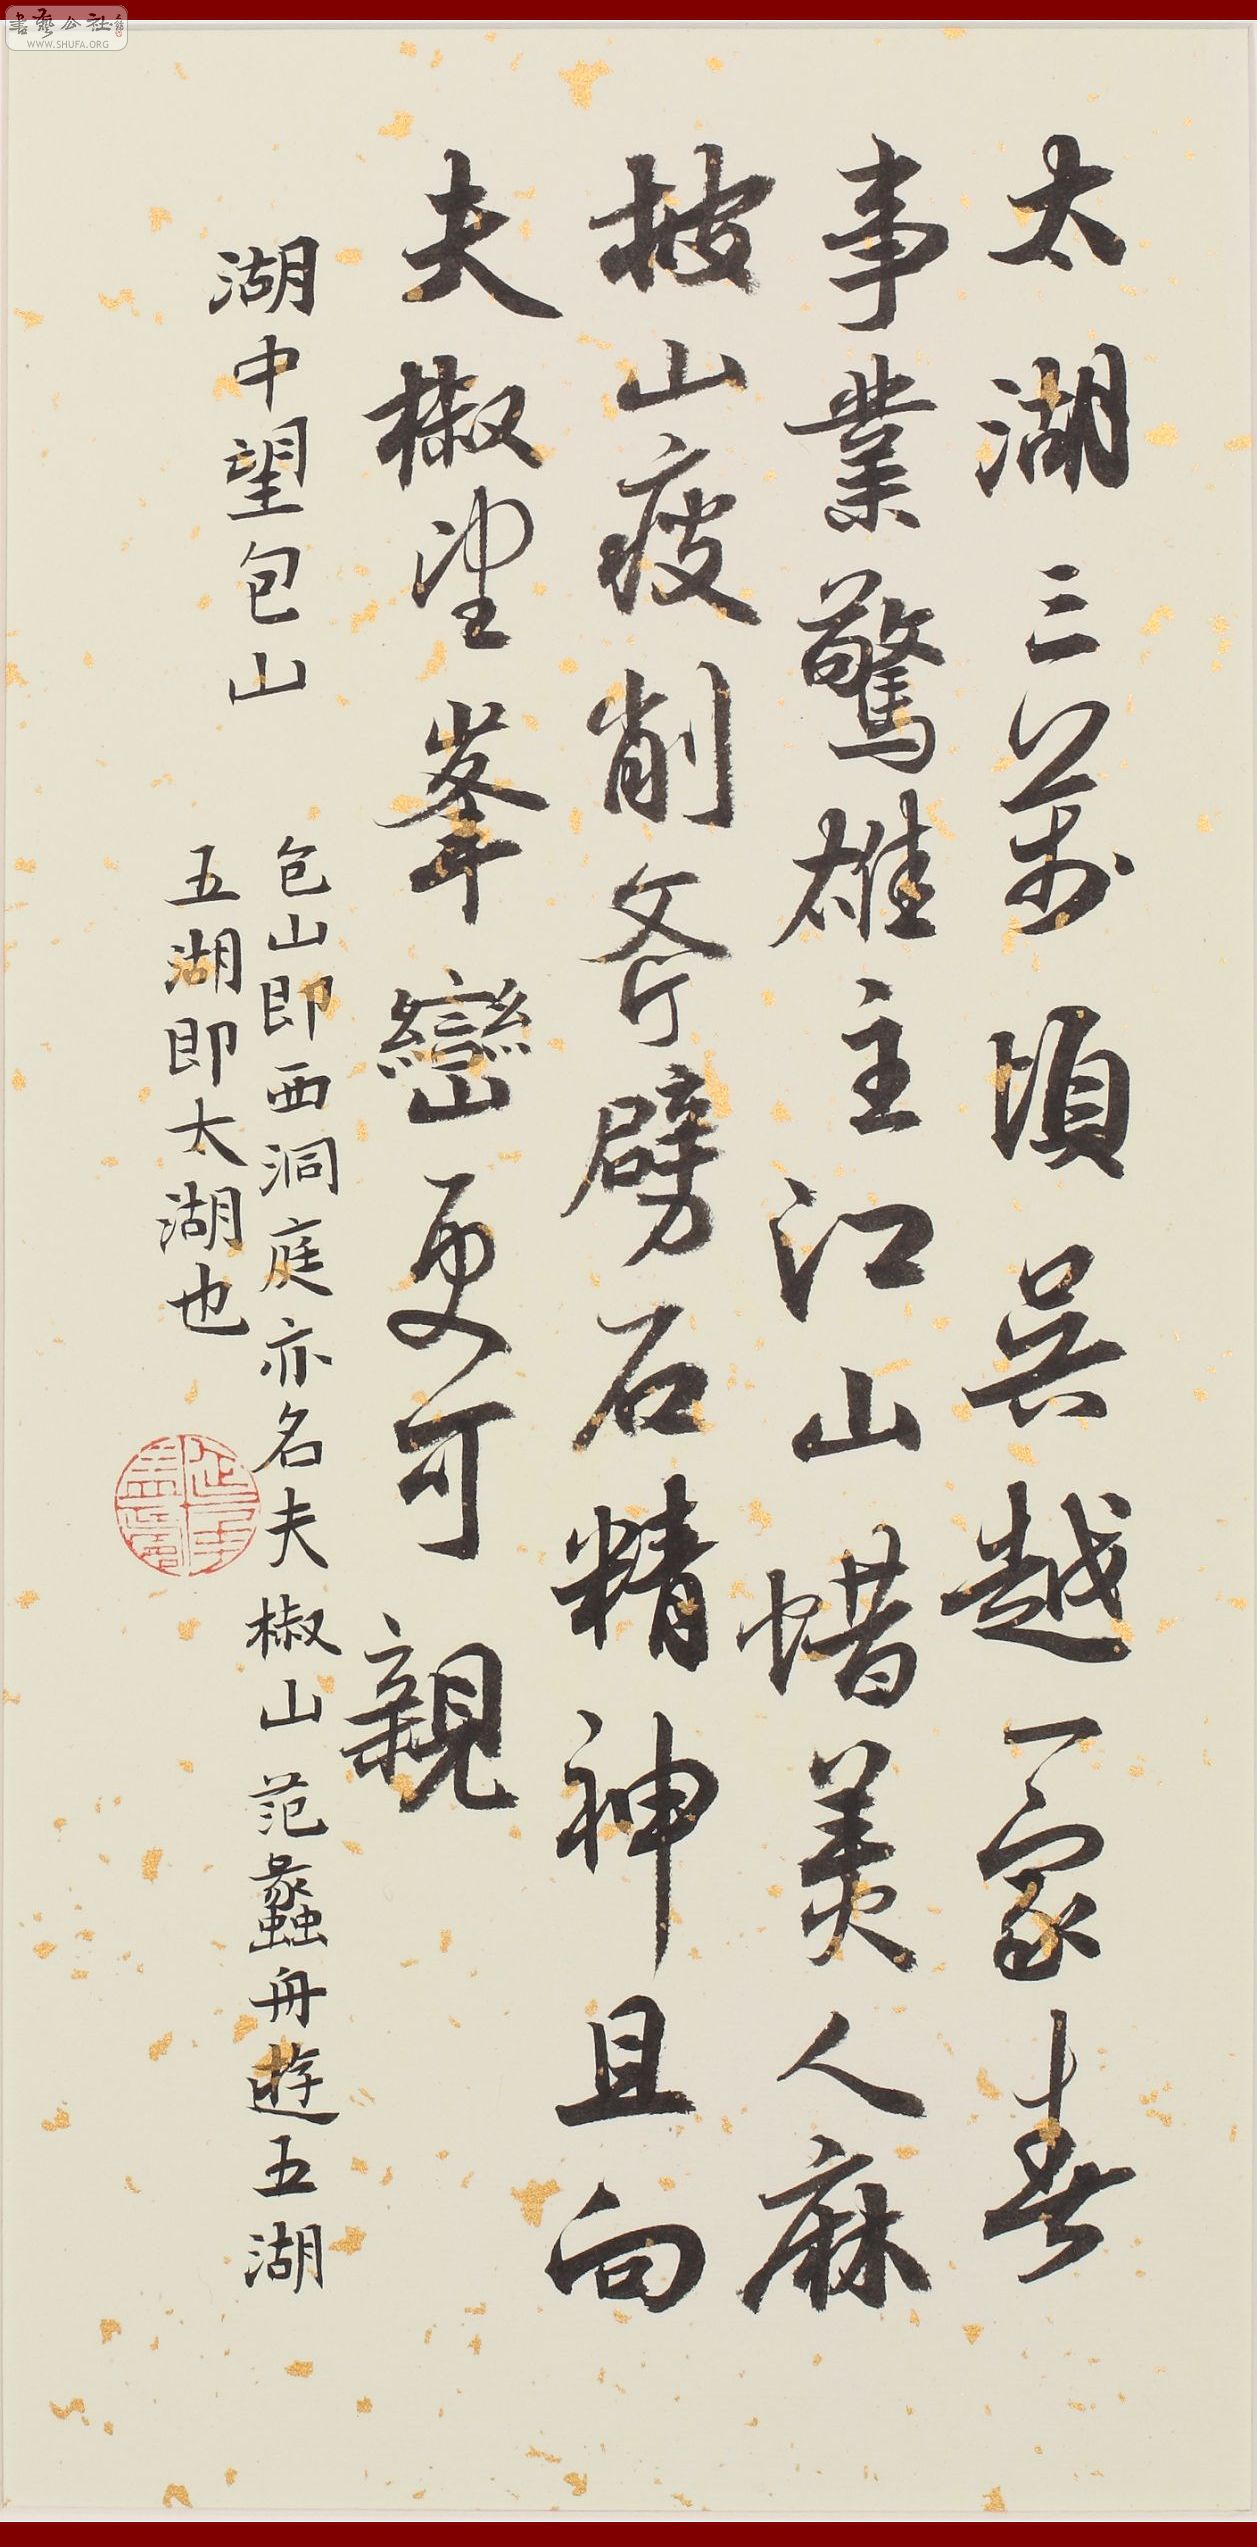 太湖三萬頃吳越一家春
事業驚雄主江山惜美人麻
披山瘦削斧劈石精神且向
夫椒望峯巒更可親
湖中望包山
包山即西洞庭亦名夫椒山 范蠡舟遊五湖
五湖即太湖也
書藝公社
WWW.SHUFA.ORG